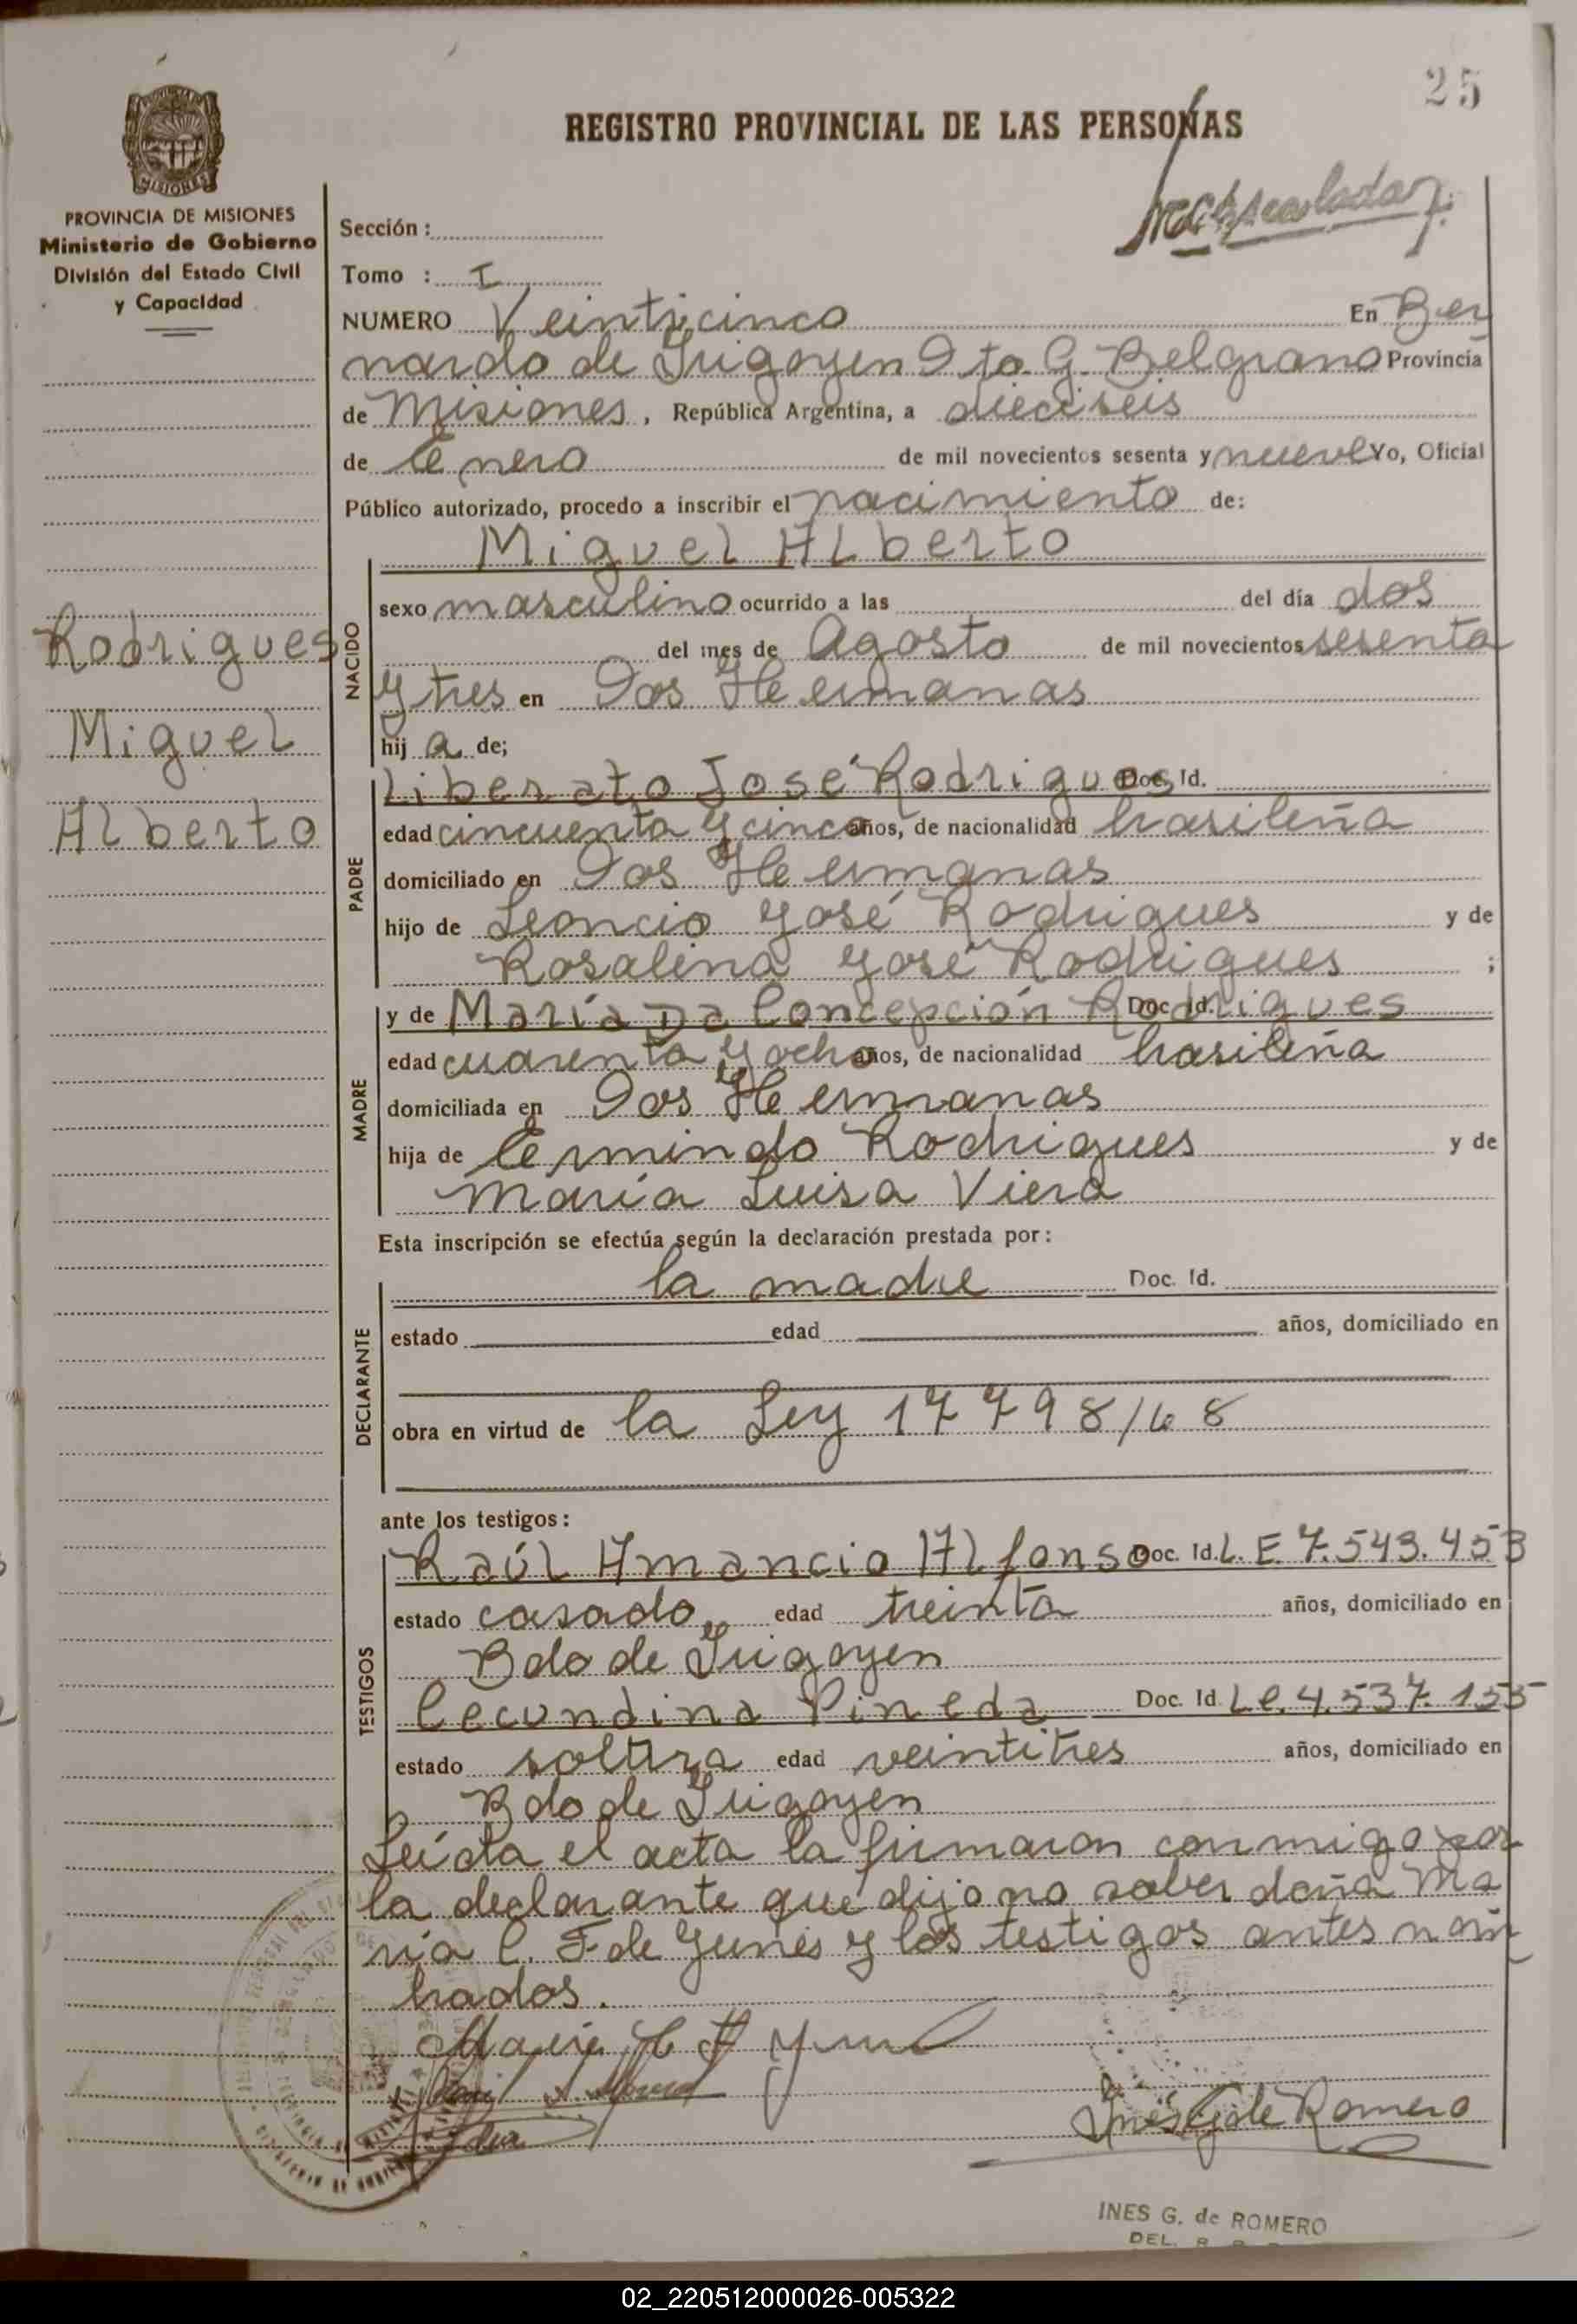 25
REGISTRO PROVINCIAL DE LAS PERSONAS
MISIONES
PROVINCIA DE MISIONES
Ministerio de Gobierno
División del Estado Civil
y Capacidad
Sección :
Tomo : I
NUMERO Veinticinco En Ber
nardo de Irigoyen Dto. G. Belgrano Provincia
de Misiones, República Argentina, a dieciseis
de Enero de mil novecientos sesenta y nueve Yo, Oficial
Público autorizado, procedo a inscribir el nacimiento de:
Miguel Alberto
Rodrigues
Miguel
Alberto
NACIDO
sexo masculino ocurrido a las del día dos
del mes de Agosto de mil novecientos sesenta
y tres en Dos Hermanas
hij a de;
PADRE
Liberato José Rodrigues Doc. Id.
edad cincuenta y cinco años, de nacionalidad brasileña
domiciliado en Dos Hermanas
hijo de Leoncio José Rodrigues y de
Rosalina José Rodrigues ;
MADRE
y de María Da Concepción Rodrigues Doc. Id.
edad cuarenta y ocho años, de nacionalidad brasileña
domiciliada en Dos Hermanas
hija de Ermindo Rodrigues y de
María Luisa Viera
Esta inscripción se efectúa según la declaración prestada por:
DECLARANTE
la madre Doc. Id.
estado edad años, domiciliado en
obra en virtud de la Ley 17798/68
ante los testigos:
TESTIGOS
Raúl Amancio Alfonso Doc. Id. L. E. 7.543.453
estado casado edad treinta años, domiciliado en
Bdo de Irigoyen
Cecundina Pineda Doc. Id. L e. 4.537.155
estado soltera edad veintitres años, domiciliado en
Bdo de Irigoyen
Leída el acta la firmaron conmigo por
la declarante que dijo no saber doña Ma
ría C. F. de Yunes y los testigos antes nom
brados.
Inés G de Romero
INES G. de ROMERO
DEL.
02_220512000026-005322